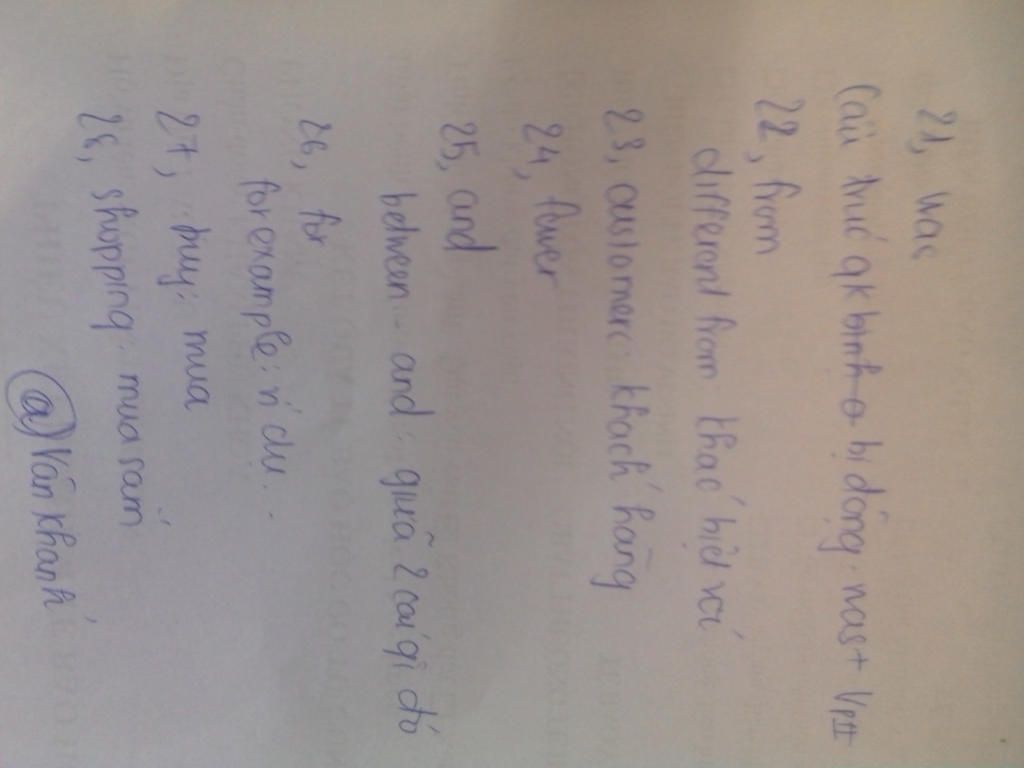 21, was
Cấu trúc qk bị động. was + VPII
22, from
different from: khác biệt với
23, customers: khách hàng
24, fewer
25, and
between - and: giữa 2 cái gì đó
26, for
for example: ví dụ.
27, buy: mua
28, shopping: mua sắm
@ Vân Khánh